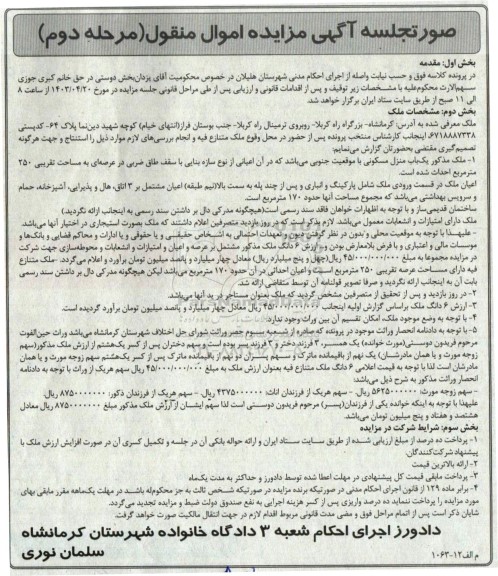 صورتجلسه آگهی مزایده اموال منقول(مرحله دوم)
بخش اول: مقدمه
در پرونده کلاسه فوق و حسب نیابت واصله از اجرای احکام مدنی شهرستان هلیلان در خصوص محکومیت آقای یزدان‌بخش دوستی در حق خانم کبری جوزی
سهم‌الارث محکوم‌علیه با مشخصات زیر توقیف و پس از اقدامات قانونی و ارزیابی پس از طی مراحل قانونی جلسه مزایده در مورخ ۱۴۰۳/۰۴/۲۰ از ساعت ۸
الی ۱۱ صبح از طریق سایت ستاد ایران برگزار خواهد شد.
بخش دوم: مشخصات ملک
ملک معرفی شده به آدرس: کرمانشاه- بزرگراه راه کربلا- روبروی ترمینال راه کربلا- جنب بوستان فراز(انتهای خیام) کوچه شهید دین‌نما پلاک ۶۴- کدپستی
۶۷۱۸۸۸۷۳۳۸. اینجانب کارشناس منتخب پرونده پس از حضور در محل وقوع ملک متنازع فیه و انجام بررسی‌های لازم موارد ذیل را استنتاج و جهت هرگونه
تصمیم‌گیری مقتضی بحضورتان گزارش می‌نمایم:
۱- ملک مذکور یک‌باب منزل مسکونی با موقعیت جنوبی می‌باشد که در آن اعیانی از نوع سازه بنایی با سقف طاق ضربی در عرصه‌ای به مساحت تقریبی ۲۵۰
مترمربع احداث شده است.
اعیان ملک در قسمت ورودی ملک شامل پارکینگ و انباری و پس از چند پله به سمت بالا(نیم طبقه) اعیان مشتمل بر ۳ اتاق، هال و پذیرایی، آشپزخانه، حمام
و سرویس بهداشتی می‌باشد که مجموع مساحت آنها حدود ۱۷۰ مترمربع است.
ساختمان قدیمی‌ساز و با توجه به اظهارات خواهان فاقد سند رسمی است(هیچگونه مدرکی دال بر داشتن سند رسمی به اینجانب ارائه نگردید)
ملک دارای امتیازات و انشعابات معمول می‌باشد. لازم بذکر است که در روز بازدید متصرفین اعلام داشتند که ملک بصورت استیجاری در اختیار آنها می‌باشد.
- علیهذا با توجه به موقعیت محلی و بدون در نظر گرفتن دیون و تعهدات احتمالی به اشخاص حقیقی و یا حقوقی و یا ادارات و محاکم قضایی و بانک‌ها و
موسسات مالی و اعتباری و با فرض بلامعارض بودن و ارزش ۶ دانگ ملک مذکور مشتمل بر عرصه و اعیان و امتیازات و انشعابات و محوطه‌سازی جهت شرکت
در مزایده مجموعا به مبلغ ۴۵/۰۰۰/۰۰۰/۰۰۰ ریال(چهل و پنج میلیارد ریال) معادل چهار میلیارد و پانصد میلیون تومان برآورد و اعلام می‌گردد. -ملک متنازع
فیه دارای مساحت عرصه تقریبی ۲۵۰ مترمربع است و اعیان احداثی در آن حدود ۱۷۰ مترمربع می‌باشد لیکن هیچگونه مدرکی دال بر داشتن سند رسمی
بابت آن به اینجانب ارائه نگردید و صرفا تصویر قولنامه آن توسط متقاضی ارائه شد.
۲- در روز بازدید و پس از تحقیق از متصرفین مشخص گردید که ملک بعنوان مستاجر در ید آنها می‌باشد.
۳- ارزش ۶ دانگ ملک براساس گزارش اولیه اینجانب ۴۵/۰۰۰/۰۰۰/۰۰۰ ریال معادل چهار میلیارد و پانصد میلیون تومان برآورد گردیده است.
۴- با توجه به وضع موجود ملک، امکان تقسیم آن بین وراث وجود ندارد.
۵- با توجه به دادنامه انحصار وراثت موجود در پرونده که صادره از شعبه سوم حصر وراثت شورای حل اختلاف شهرستان کرمانشاه می‌باشد وراث حین‌الفوت
مرحوم فریدون دوستی(مورث) خوانده) یک همسر، ۳ فرزند دختر و ۲ فرزند پسر بوده است و سهم دختران پس از کسر یک‌هشتم از ارزش ملک مذکور(سهم
زوجه مورث و یا همان مادرشان) یک نهم از باقیمانده ماترک و سهم پسران دو نهم از باقیمانده ماترک پس از کسر یک‌هشتم سهم زوجه مورث و یا همان
مادرشان است لذا با توجه به قیمت اعلامی ۶ دانگ ملک متنازع فیه بعنوان ارزش ملک به مبلغ ۴۵/۰۰۰/۰۰۰/۰۰۰ ریال سهم هریک از وراث با توجه به دادنامه
انحصار وراثت مذکور به شرح ذیل می‌باشد:
- سهم زوجه مورث: ۵۶۲۵۰۰۰۰۰۰ ریال. - سهم هریک از فرزندان اناث: ۴۳۷۵۰۰۰۰۰۰ ریال - سهم هریک از فرزندان ذکور: ۸۷۵۰۰۰۰۰۰۰ ریال
علیهذا با توجه به اینکه خوانده یکی از فرزندان(پسر) مرحوم فریدون دوستی است لذا سهم ایشان از ارزش ملک مذکور مبلغ ۸۷۵۰۰۰۰۰۰۰ ریال معادل
هشتصد و هفتاد و پنج میلیون تومان می‌باشد.
بخش سوم: شرایط شرکت در مزایده
۱- پرداخت ده درصد از مبلغ ارزیابی شده از طریق سایت ستاد ایران و ارائه حواله بانکی آن در جلسه و تکمیل کسری آن در صورت افزایش ارزش ملک با
پیشنهاد شرکت‌کنندگان.
۲- ارائه بالاترین قیمت
۳- پرداخت مابقی قیمت کل پیشنهادی در مهلت اعطا شده توسط دادورز و حداکثر به مدت یک‌ماه
۴- برابر ماده ۱۲۹ از قانون اجرای احکام مدنی در صورتیکه برنده مزایده در صورتیکه شخص ثالث به جز محکوم‌له باشد در مهلت یک‌ماهه مقرر مابقی بهای
مورد مزایده را پرداخت ننماید ده درصد واریزی پس از کسر هزینه اجرایی به نفع صندوق دولت ضبط و مزایده تجدید می‌گردد.
شایان ذکر است پس از اتمام مراحل فوق و مضی مدت قانونی مربوط اقدام لازم در جهت انتقال مالکیت صورت خواهد گرفت.
دادورز اجرای احکام شعبه ۳ دادگاه خانواده شهرستان کرمانشاه
سلمان نوری
م الف۱۲-۱۰۶۳